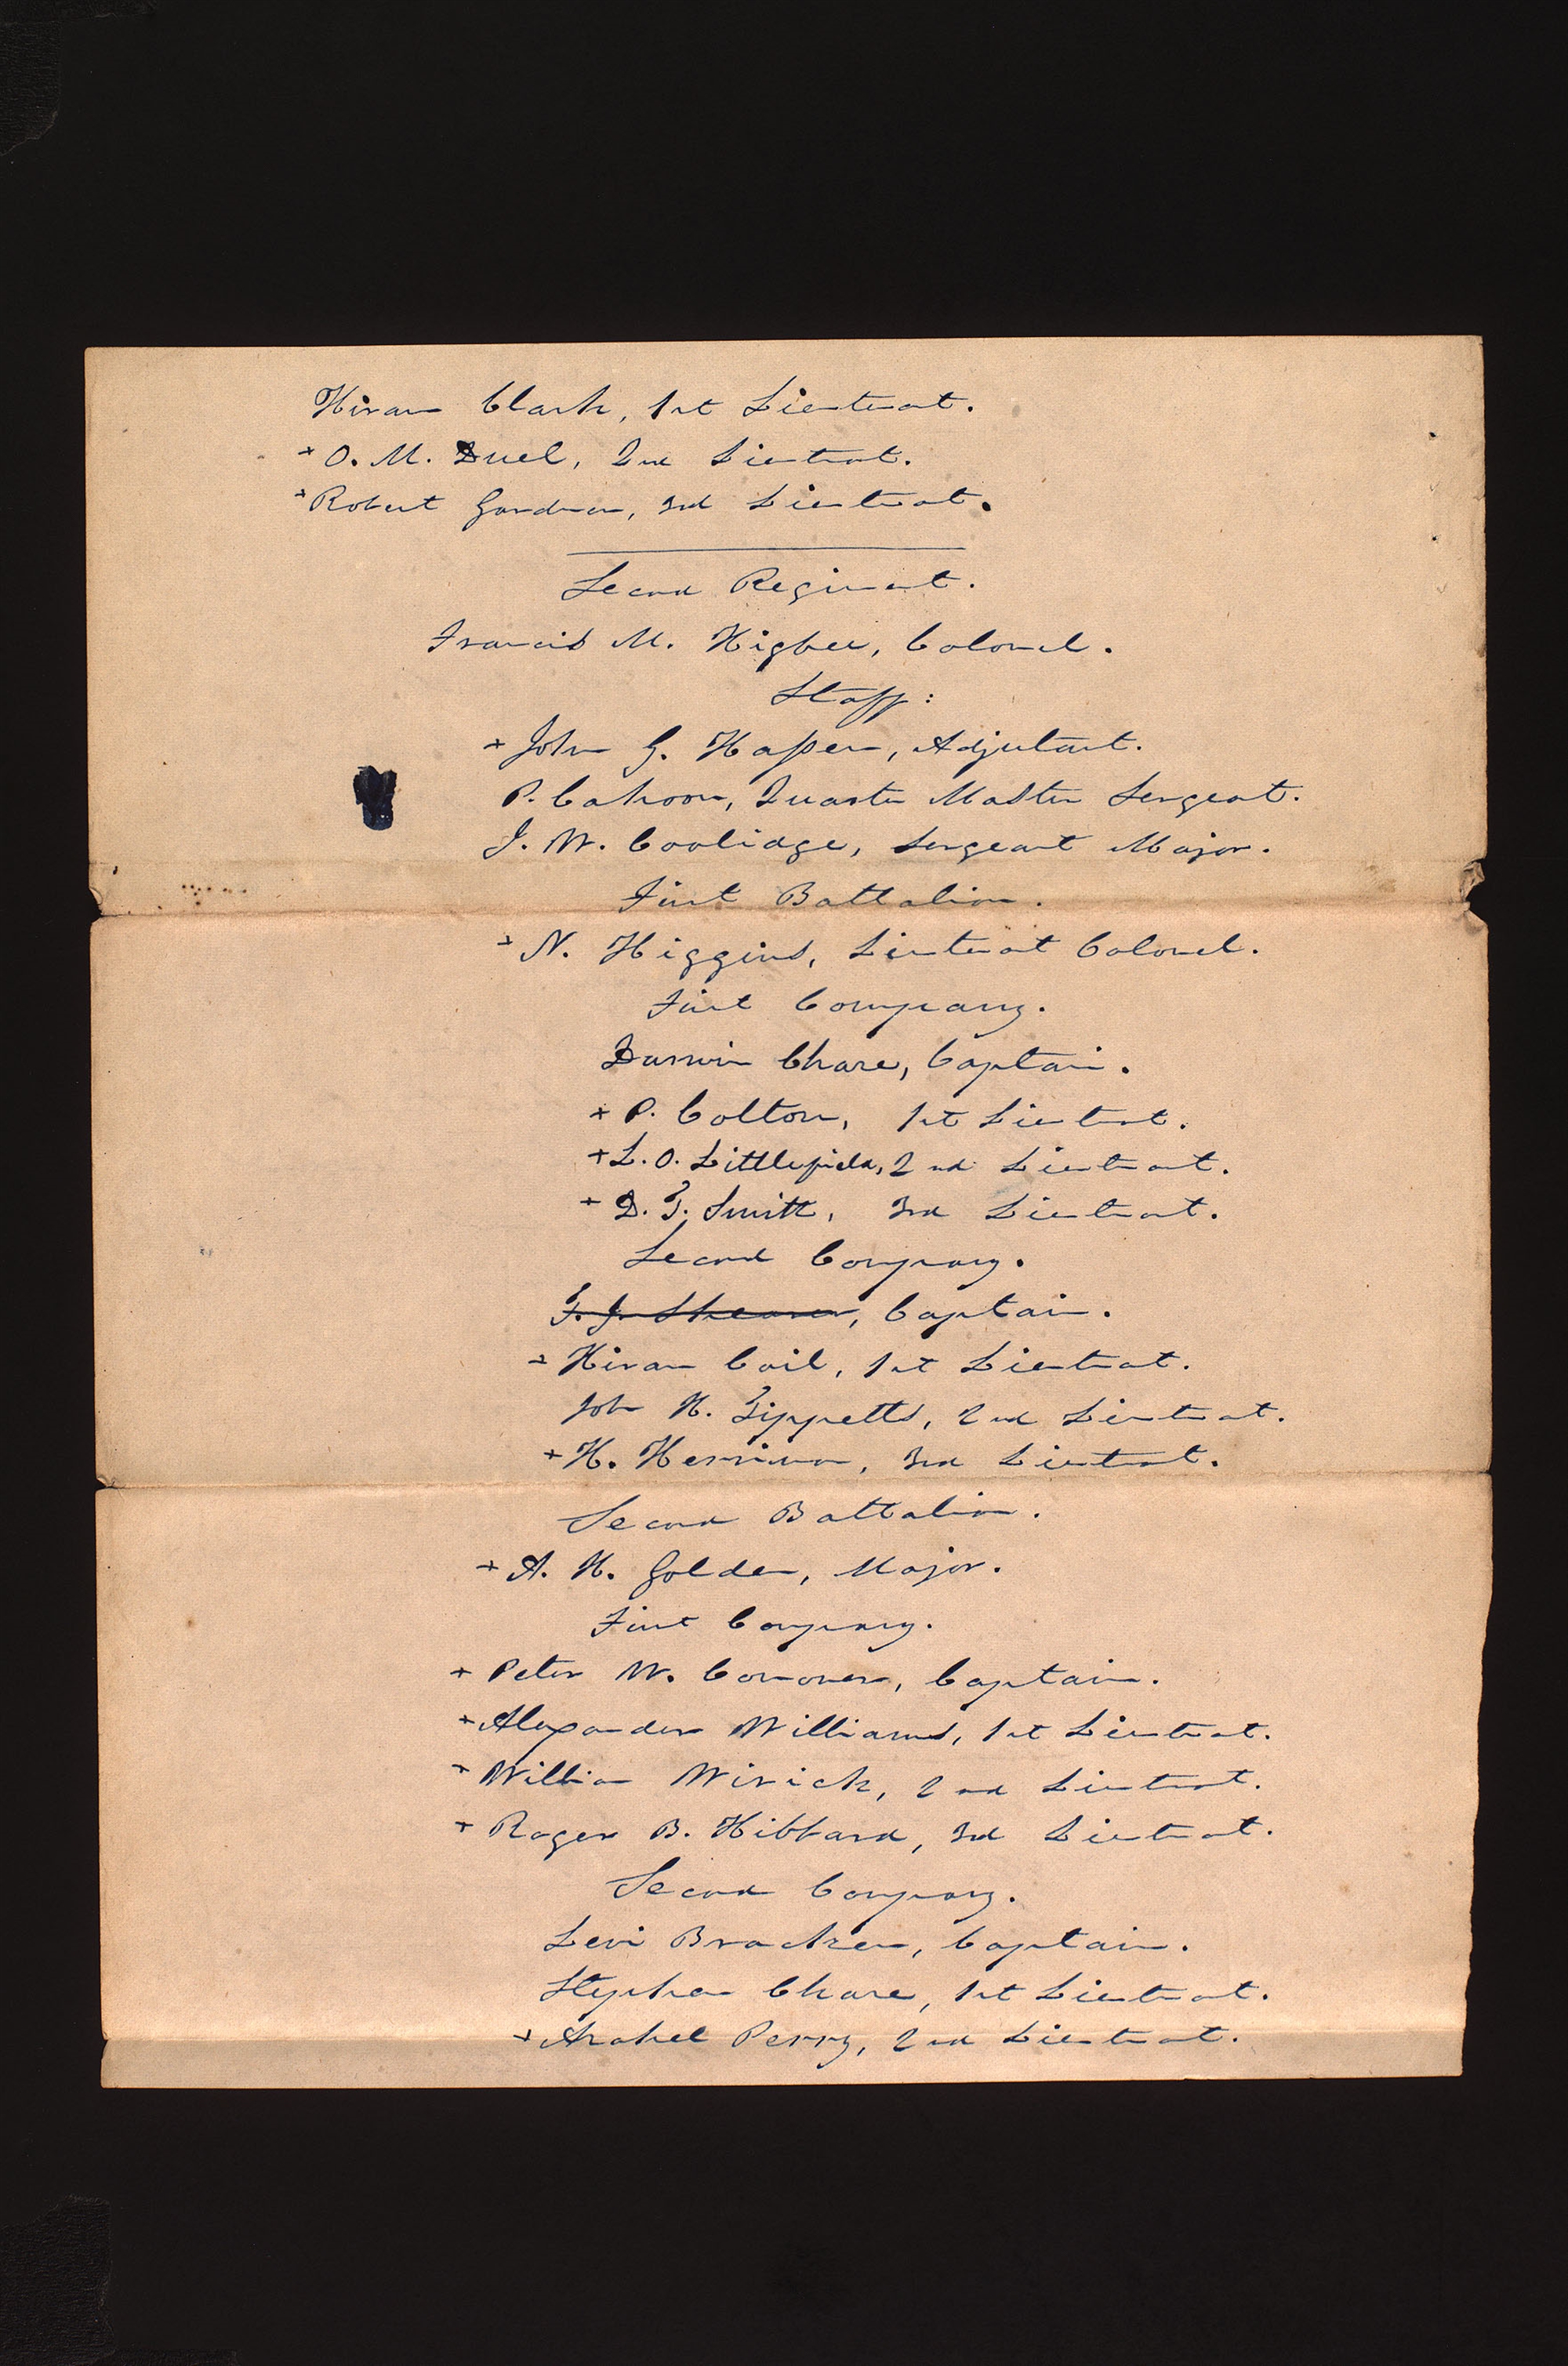 Hiram Clark, 1st Lieutenant.
+ O. M. Duel, 2nd Lieutenant.
+ Robert Gardner, 3rd Lieutenant.
Second Regiment.
Francis M. Higbee, Colonel.
Staff:
+ John G. Hasper, Adjutant.
P. Cahoon, Quarter Master Sergeant.
J. W. Coolidge, Sergeant Major.
First Battalion.
+ N. Higgins, Lieutenant Colonel.
First Company.
Darwin Chase, Captain.
+ P. Colton, 1st Lieutenant.
+ L. O. Littlefield, 2nd Lieutenant.
+ D. T. Smith, 3rd Lieutenant.
Second Company.
F. J. Shearer, Captain.
+ Hiram Coil, 1st Lieutenant.
John H. Tippetts, 2nd Lieutenant.
+ H. Herriman, 3rd Lieutenant.
Second Battalion.
+ A. H. Golden, Major.
First Company.
+ Peter W. Conover, Captain.
+ Alexander Williams, 1st Lieutenant.
+ William Wirick, 2nd Lieutenant.
+ Roger B. Hibbard, 3rd Lieutenant.
Second Company.
Levi Bracken, Captain.
Stephen Chase, 1st Lieutenant.
+ Asahel Perry, 2nd Lieutenant.